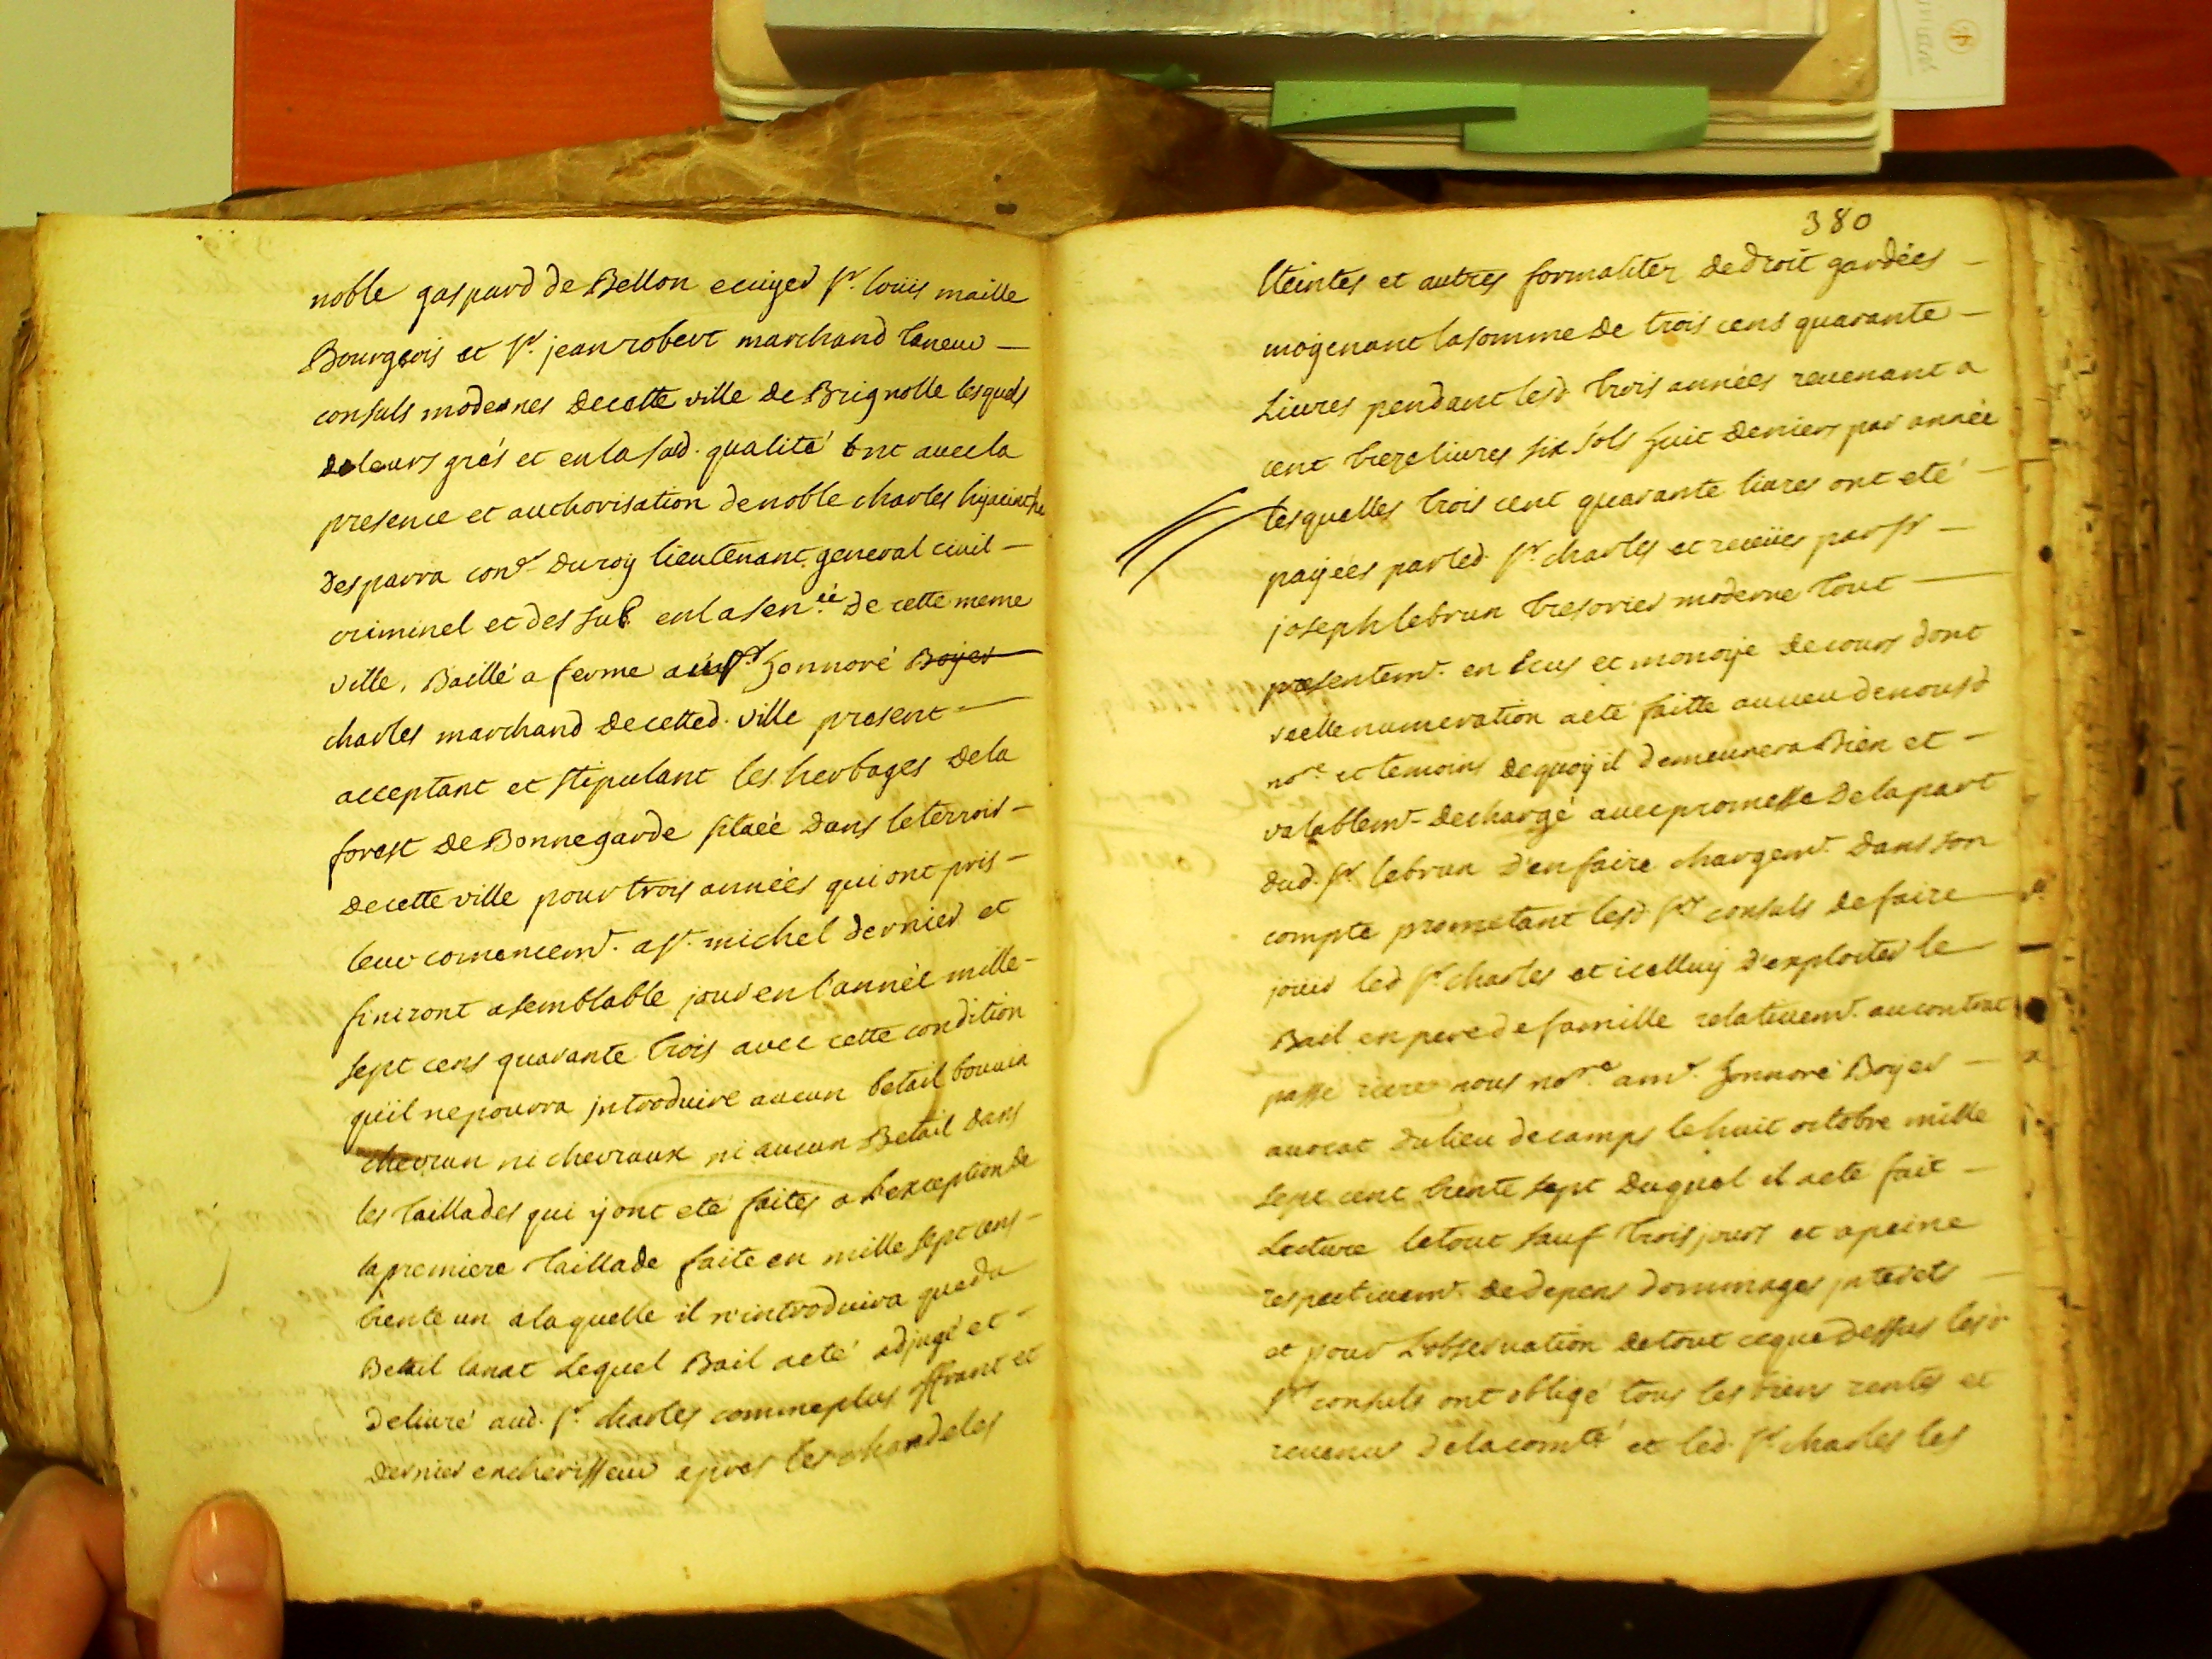 noble gaspard de Bellon ecuyer sr. loüis maille
Bourgeois et sr. jean robert marchand taneur –
consuls modernes de cette ville de Brignolle lesquels
de leurs grés et en la sud. qualité ont avec la
presence et authorisation de noble charles hijacinthe
desparra conr. du roy lieutenant general civil –
criminel et des sub. en la senée. de cette meme
ville, Baillé a ferme au sr. honnoré Boyer
charles marchand de cetted. ville present –
acceptant et stipulant les herbages de la
forest de Bonnegarde située dans le terroir –
de cette ville pour trois années qui ont pris –
leur comencemt. a st. michel dernier et
finiront a semblable jour en l'année mille –
sept cens quarante trois avec cette condition
quil ne pourra introduire aucun betail bouvin
chevrun ni chevraux ni aucun Betail dans
les taillades qui y ont eté faites a l'exception de
la premiere taillade faite en mille sept cens –
trente un a laquelle il n'introduira que du
Betail lanat Lequel Bail a eté adjugé et –
delivré aud. sr. charles comme plus offrant et
dernier encherisseur apres les chandeles
380
steintes et autres formalitez de droit gardées –
moyenant la somme de trois cens quarante –
Livres pendant lesd. trois années revenant a
cent treze livres six sols huit deniers par année
lesquelles trois cent quarante livres ont eté –
payées par led. sr. charles et receües par sr –
joseph lebrun tresorier moderne tout –
presentemt. en ecus et monoye de cours dont
reelle numeration a eté faitte au veu de nousd
nore. et temoins de quoy il demeurera Bien et –
valablemt. dechargé avec promesse de la part
dud. sr. lebrun d'en faire chargemt. dans son
compte prometant lesd. srs consuls de faire
jouir led sr. charles et icelluy d'exploiter le
Bail en pere de famille relativemt. au contrat
passé riere nous nore. a mr. honnoré Boyer –
avocat du lieu de camps le huit octobre mille
sept cent trente sept duquel il a eté fait –
Lecture le tout sauf trois jours et a peine
respectivemt. de depens dommages interets –
et pour l'observation de tout ce que dessus lesd
srs consuls ont obligé tous les biens rentes et
revenus de la comté et led. sr. charles les